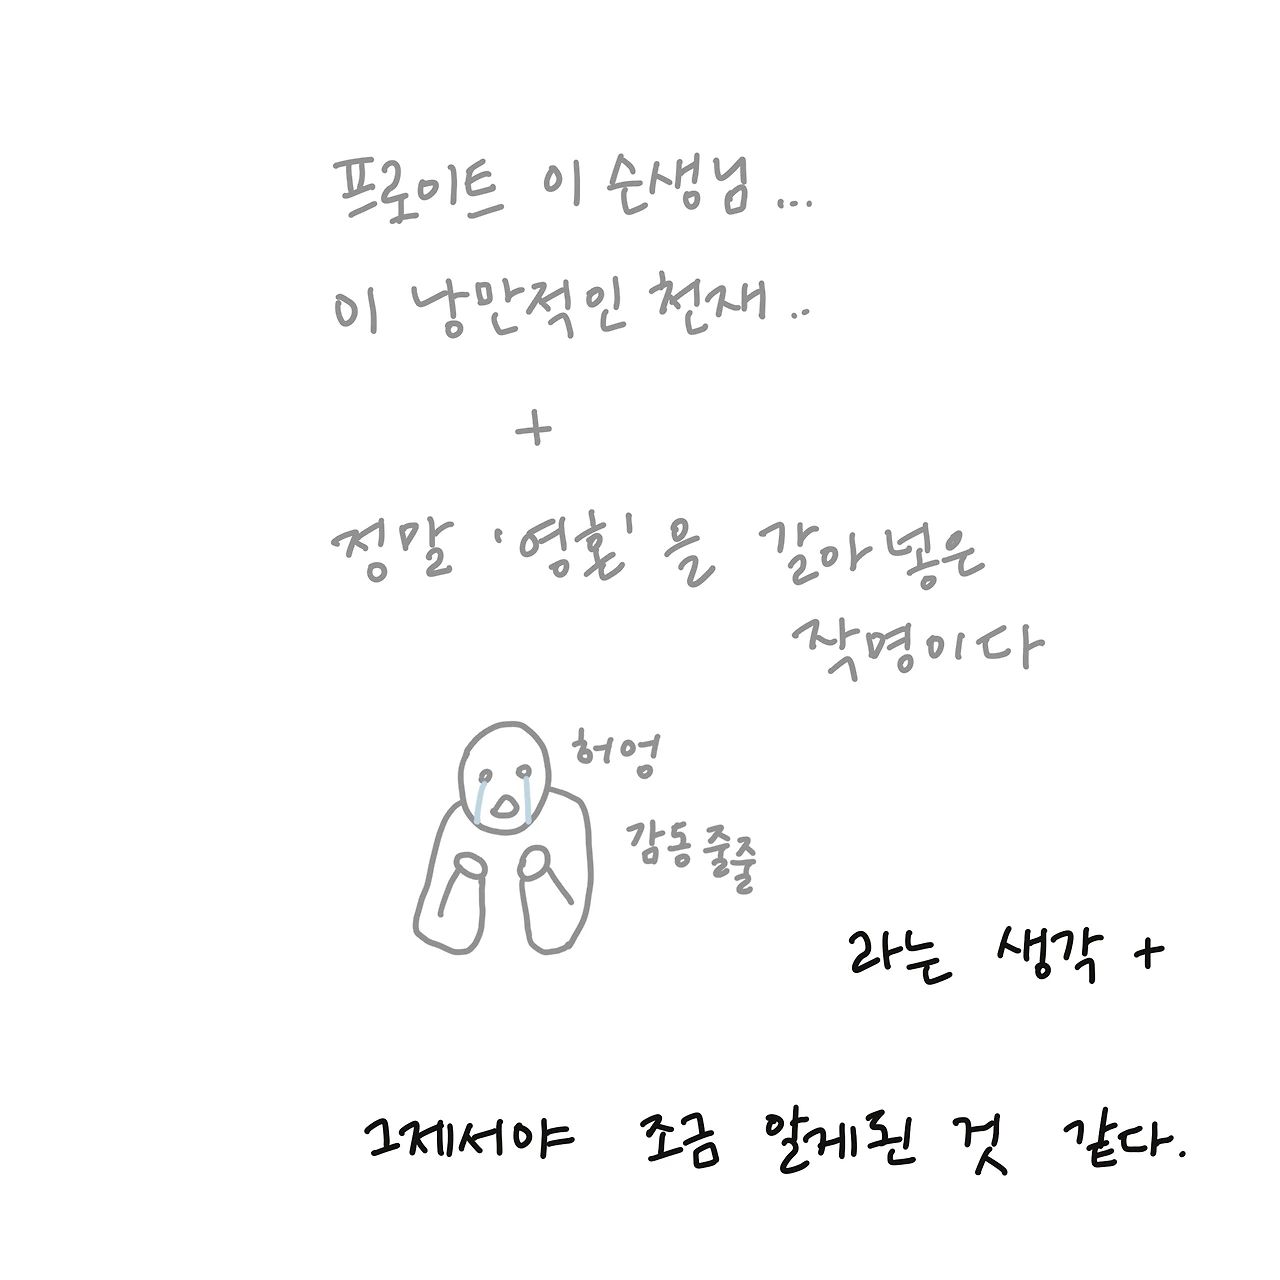 프로이트 이 슨생님...
이 낭만적인 천재..
+
정말 '영혼'을 갈아 넣은
작명이다
허엉
감동 줄줄
라는 생각 +
그제서야 조금 알게된 것 같다.